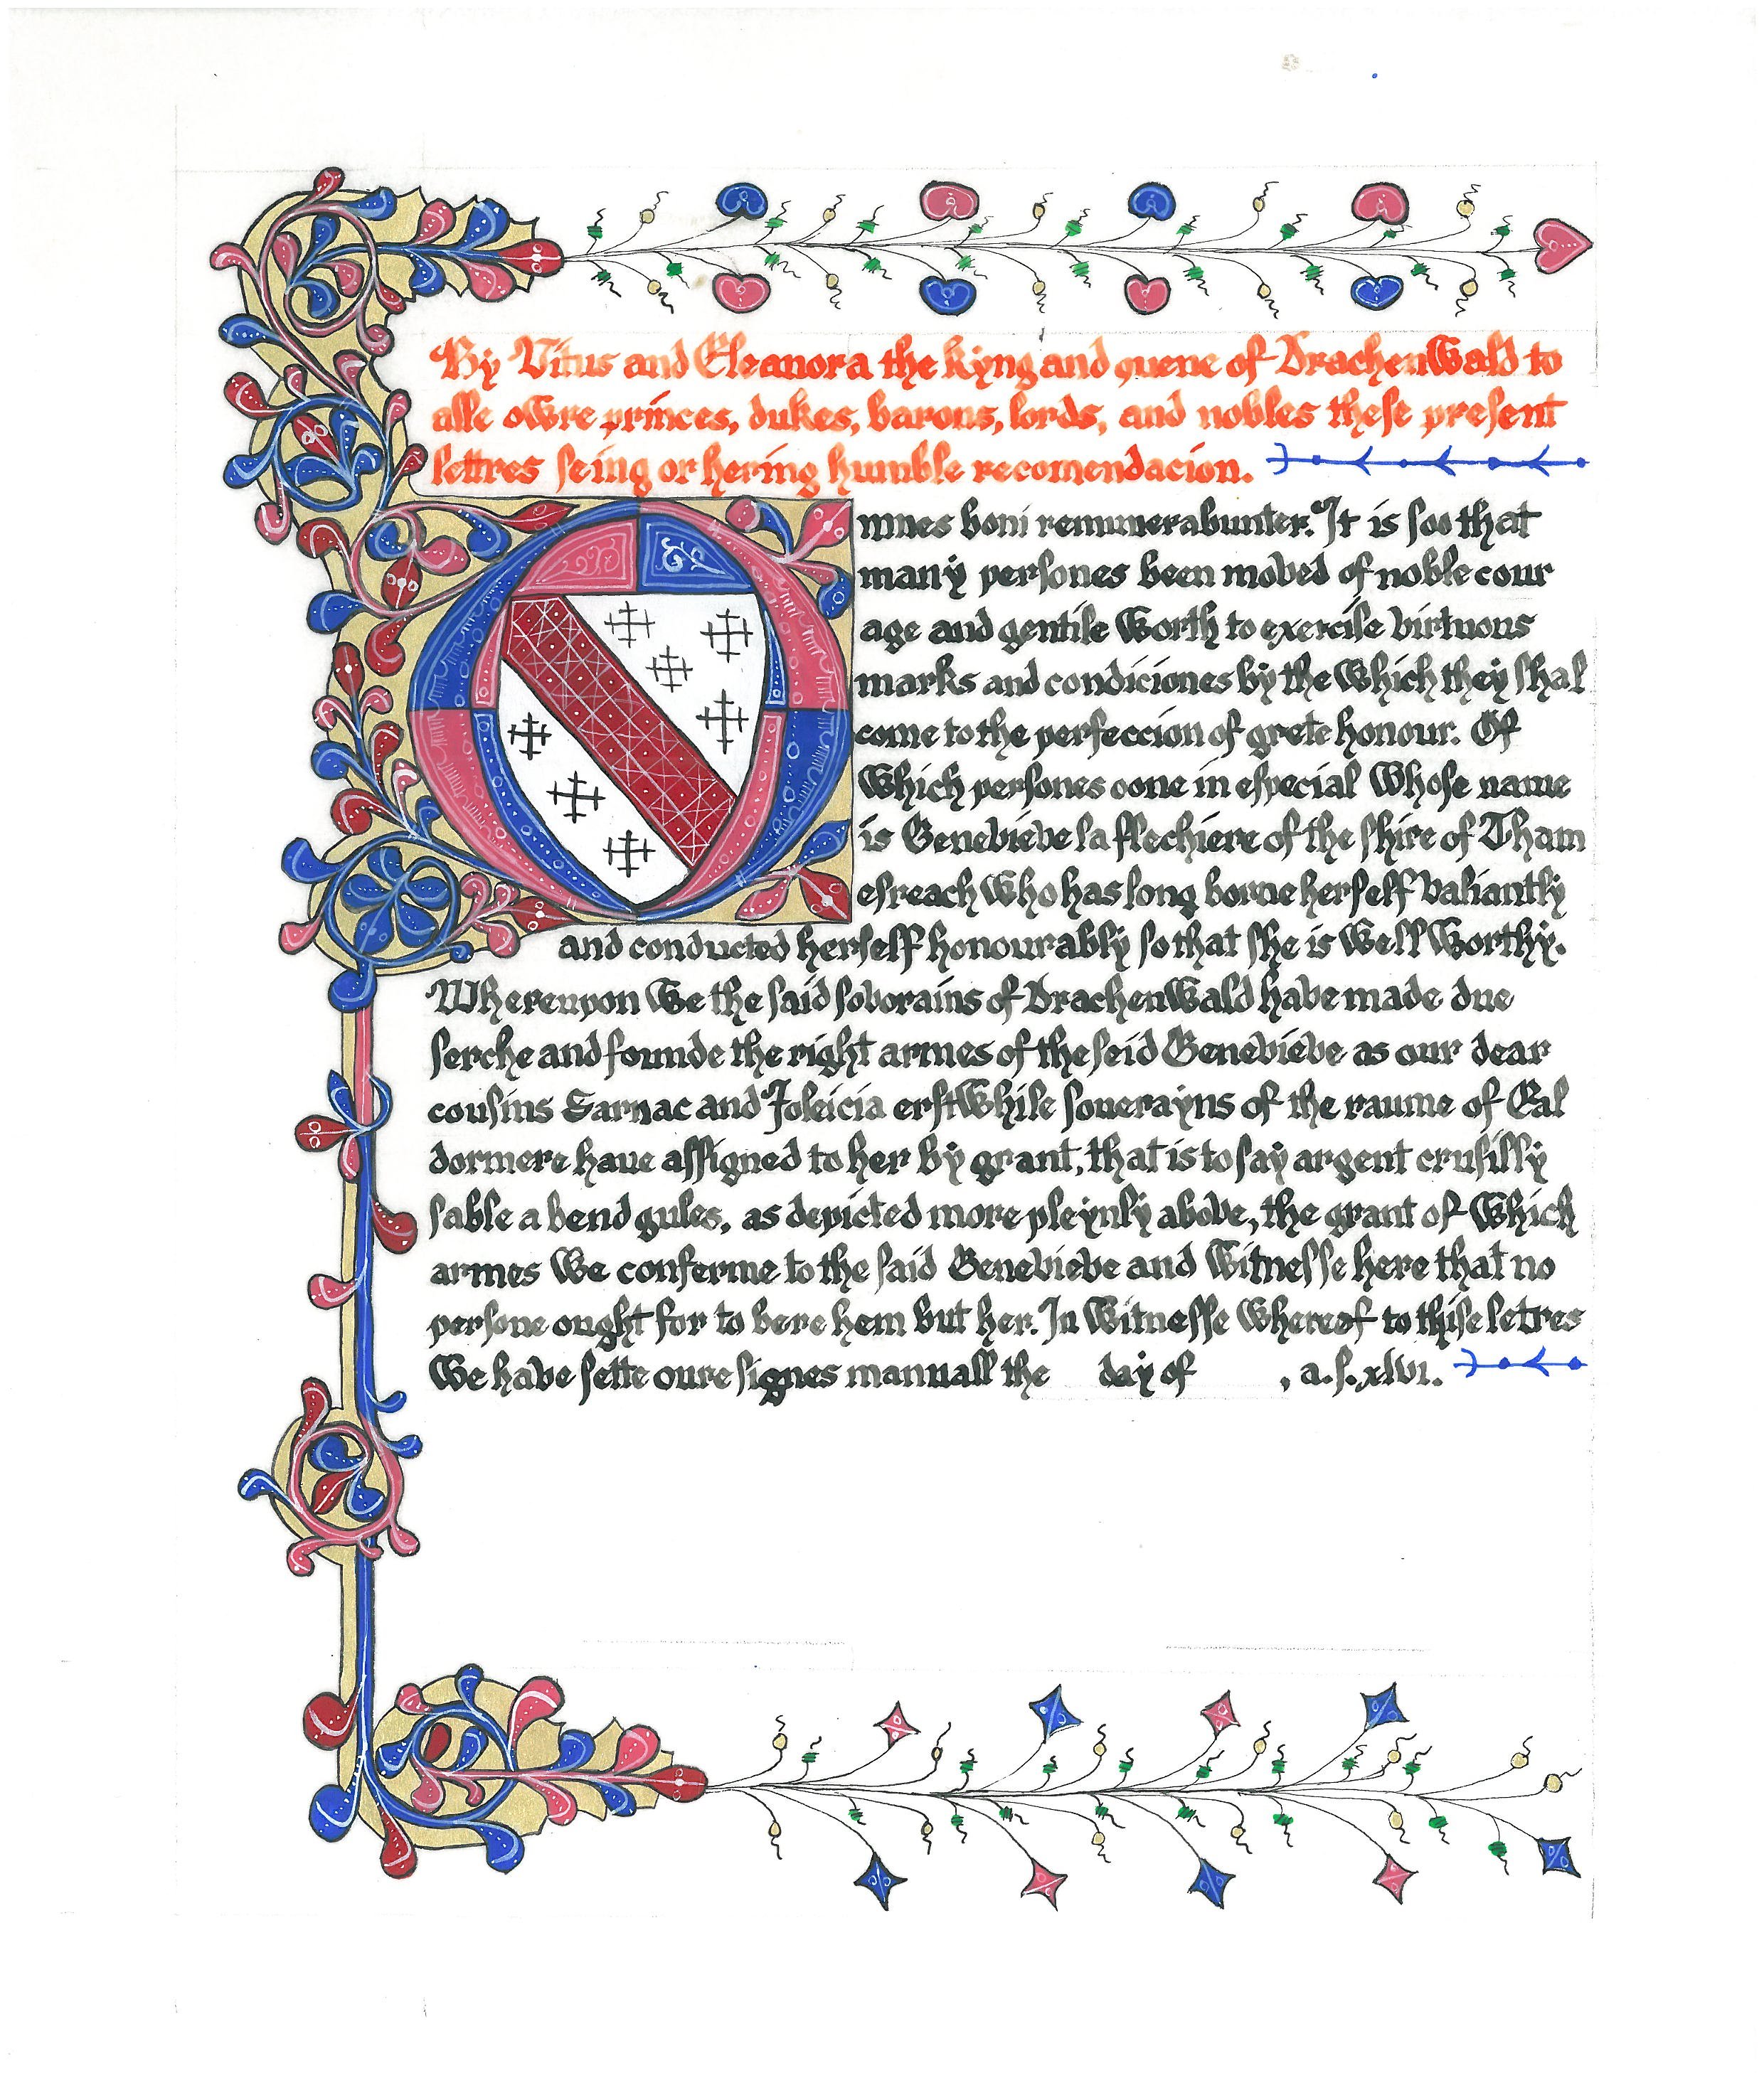 By Vitus and Eleanora the kyng and quene of Drachenwald to
alle owre princes, dukes, barons, lords, and nobles these present
lettres seing or hering humble recomendacion.
Omnes boni remunerabunter. It is soo that
many persones been moved of noble cour
age and gentile worth to exercise virtuous
marks and condiciones by the which they shal
come to the perfeccion of grete honour. Of
which persones oone in especial whose name
is Genevieve la flechiere of the shire of Tham
esreach who has long borne herself valiantly
and conducted herself honourably so that she is well worthy.
Whereupon we the said soverains of Drachenwald have made due
serche and founde the right armes of the seid Genevieve as our dear
cousins Sarnac and Joleicia erstwhile souerayns of the raume of Eal
dormere haue assigned to her by grant, that is to say argent crusilly
sable a bend gules, as depicted more pleynly above, the grant of which
armes we conferme to the said Genevieve and witnesse here that no
persone ought for to bere hem but her. In witnesse whereof to thise letres
we have sette oure signes manuall the day of , a.s. xlvi.